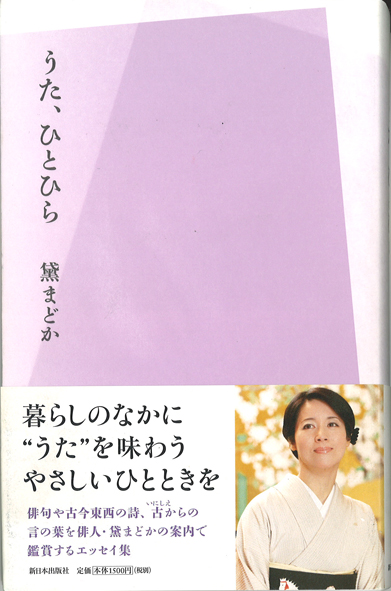 うた、ひとひら
黛まどか
暮らしのなかに
“うた”を味わう
やさしいひとときを
俳句や古今東西の詩、古からの
いにしえ
言の葉を俳人・黛まどかの案内で
鑑賞するエッセイ集
新日本出版社 定価 本体1500円(税別)